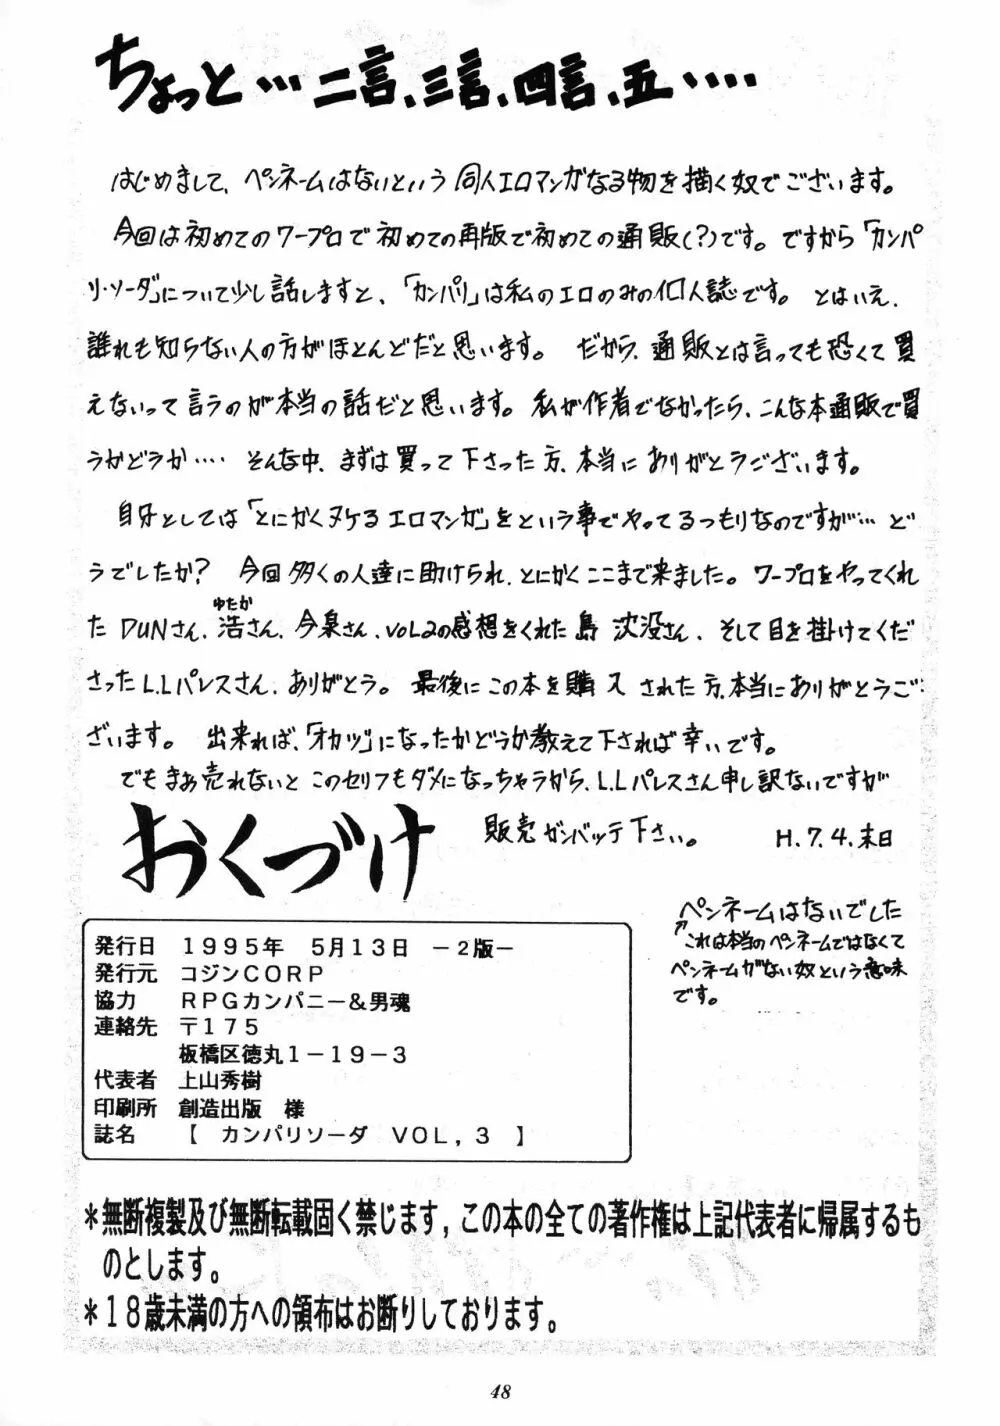 ちょっと…二言、三言、四言、五‥‥
はじめまして、ペンネームはないという同人エロマンガなる物を描く奴でございます。
今回は初めてのワープロで初めての再版で初めての通販(？)です。ですから「カンパ
リ・ソーダ」について少し話しますと、「カンパリ」は私のエロのみの個人誌です。とはいえ、
誰れも知らない人の方がほとんどだと思います。だから、通販とは言っても恐くて買
えないって言うのが本当の話だと思います。私が作者でなかったら、こんな本通販で買
うかどうか‥‥ そんな中、まずは買って下さった方、本当にありがとうございます。
自分としては「とにかくヌケるエロマンガ」をという事でやってるつもりなのですが… ど
うでしたか？ 今回多くの人達に助けられ、とにかくここまで来ました。ワープロをやってくれ
ゆたか
たDUNさん、浩さん、今泉さん、VOL2の感想をくれた島 沈没さん、そして目を掛けてくだ
さったL.Lパレスさん、ありがとう。最後にこの本を購入された方、本当にありがとうご
ざいます。 出来れば、「オカヅ」になったかどうか教えて下されば幸いです。
でもまぁ売れないとこのセリフもダメになっちゃうから、L.Lパレスさん申し訳ないですが
販売ガンバッテ下さい。 H.7.4.末日
おくづけ
ペンネームはないでした
これは本当のペンネームではなくて
ペンネームがない奴という意味
です。
発行日 1995年 5月13日 －2版－
発行元 コジンCORP
協力 RPGカンパニー＆男魂
連絡先 〒175
板橋区徳丸1－19－3
代表者 上山秀樹
印刷所 創造出版 様
誌名 【 カンパリソーダ VOL，3 】
＊無断複製及び無断転載固く禁じます，この本の全ての著作権は上記代表者に帰属するも
のとします。
＊18歳未満の方への領布はお断りしております。
48